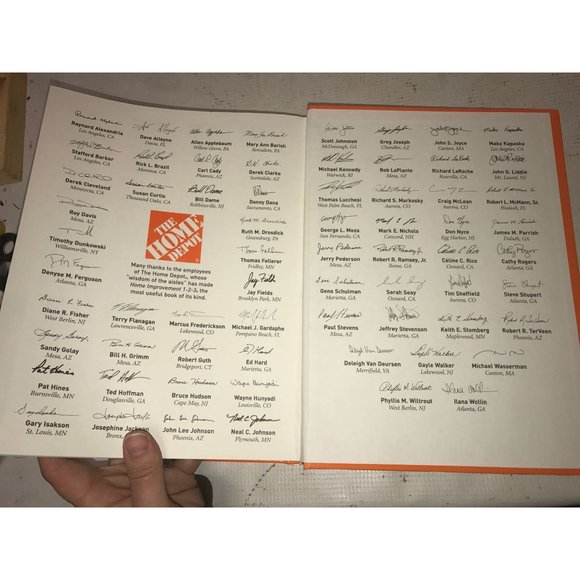 Raynard Alexandria
Los Angeles, GA
Dave Alleyne
Davie, FL
Allen Applebeum
Willow Grove, PA
Mary Ann Barish
Bensalem, PA
Stafford Barker
Los Angeles, CA
Rick L. Brazil
Manteca, CA
Carl Cady
Phoenix, AZ
Derek Clarke
Scottsdale, AZ
Derek Cleveland
Monrovia, CA
Susan Curtis
Thousand Oaks, CA
Bill Dame
Robbinsville, NJ
Danny Dana
Sacramento, CA
Roy Davis
Mesa, AZ
Ruth M. Drosdick
Greensburg, PA
Timothy Dunkowski
Williamstown, NJ
Thomas Fellerer
Fridley, MN
Denyse M. Ferguson
Atlanta, GA
Jay Fields
Brooklyn Park, MN
THE
HOME
DEPOT
Many thanks to the employees
of The Home Depot, whose
"wisdom of the aisles" has made
Home Improvement 1-2-3, the
most useful book of its kind.
Diane R. Fisher
West Berlin, NJ
Terry Flanagan
Lawrenceville, GA
Marcus Frederickson
Lakewood, CO
Michael J. Gardaphe
Pompano Beach, FL
Sandy Golay
Mesa, AZ
Bill H. Grimm
Mesa, AZ
Robert Guth
Bridgeport, CT
Ed Hard
Marietta, GA
Pat Hines
Burnsville, MN
Ted Hoffman
Douglasville, GA
Bruce Hudson
Cape May, NJ
Wayne Hunyadi
Louisville, CO
Gary Isakson
St. Louis, MN
Josephine Jackson
Bronx,
John Lee Johnson
Phoenix, AZ
Neal C. Johnson
Plymouth, MN
Scott Johnston
McDonough, GA
Greg Joseph
Chandler, AZ
John S. Joyce
Canton, MA
Mako Kapaska
Los Angeles, CA
Michael Kennedy
Warwick, RI
Rob LaPlante
Mesa, AZ
Richard LaRoche
Oxnard, CA
John G. Liddle
Mt. Laurel, NJ
Thomas Lucchesi
West Palm Beach, FL
Richard S. Markosky
Aurora, CO
Craig McLean
Aurora, CO
Robert L. McMann, Sr.
Hialeah, FL
George L. Meza
San Fernando, CA
Mark E. Nichols
Concord, NH
Don Nyce
Egg Harbor, NJ
James M. Parrish
Duluth, GA
Jerry Pederson
Mesa, AZ
Robert R. Ramsey, Jr.
Rome, GA
Céline C. Rico
Oxnard, CA
Cathy Rogers
Atlanta, GA
Gene Schulman
Marietta, GA
Sarah Seay
Oxnard, CA
Tim Sheffield
Aurora, CO
Steve Shupert
Atlanta, GA
Paul Stevens
Mesa, AZ
Jeffrey Stevenson
Marietta, GA
Keith E. Stomberg
Maplewood, MN
Robert R. TerVeen
Phoenix, AZ
Deleigh Van Deursen
Merrifield, VA
Gayle Walker
Lakewood, NJ
Michael Wasserman
Canton, MA
Phyllis M. Wiltrout
West Berlin, NJ
Ilana Wollin
Atlanta, GA